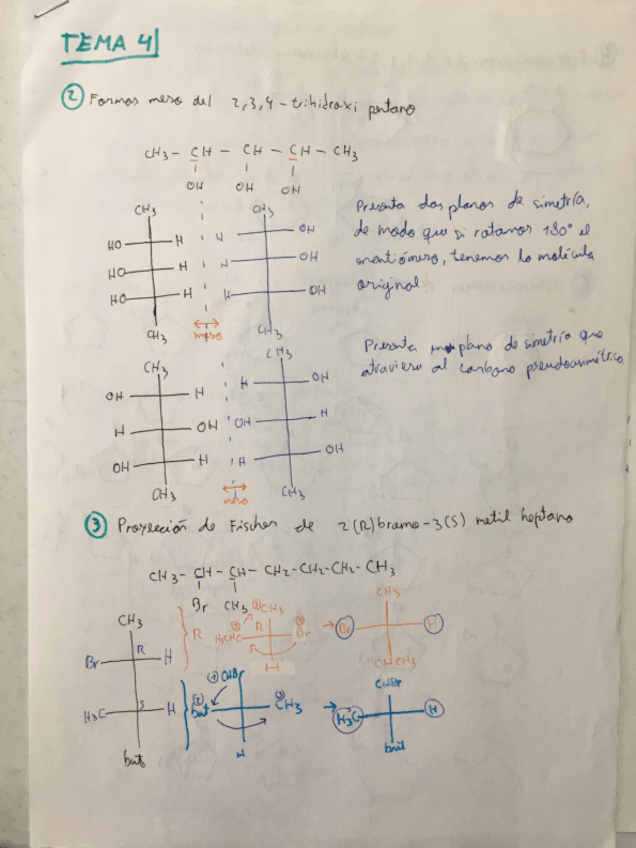 TEMA 4
② Formas meso del 2,3,4-trihidroxi pentano
CH3 - CH - CH - CH - CH3
OH OH OH
CH3 CH3
HO H H OH
HO H H OH
HO H H OH
CH3 meso CH3
Presenta dos planos de simetría,
de modo que si rotamos 180° el
enantiómero, tenemos la molécula
original
CH3 CH3
OH H H OH
H OH OH H
OH H H OH
CH3 meso CH3
Presenta plano de simetría que
atraviesa al carbono pseudoasimétrico
③ Proyección de Fischer de 2(R)bromo-3(S) metil heptano
CH3 - CH - CH - CH2 - CH2 - CH2 - CH3
Br CH3
CH3
Br R H
H3C S H
but
R ①CH3
R Br
H
CH3
Br H
CHCH3
①CHBr
② but ③ CH3
H
CHBr
H3C H
but